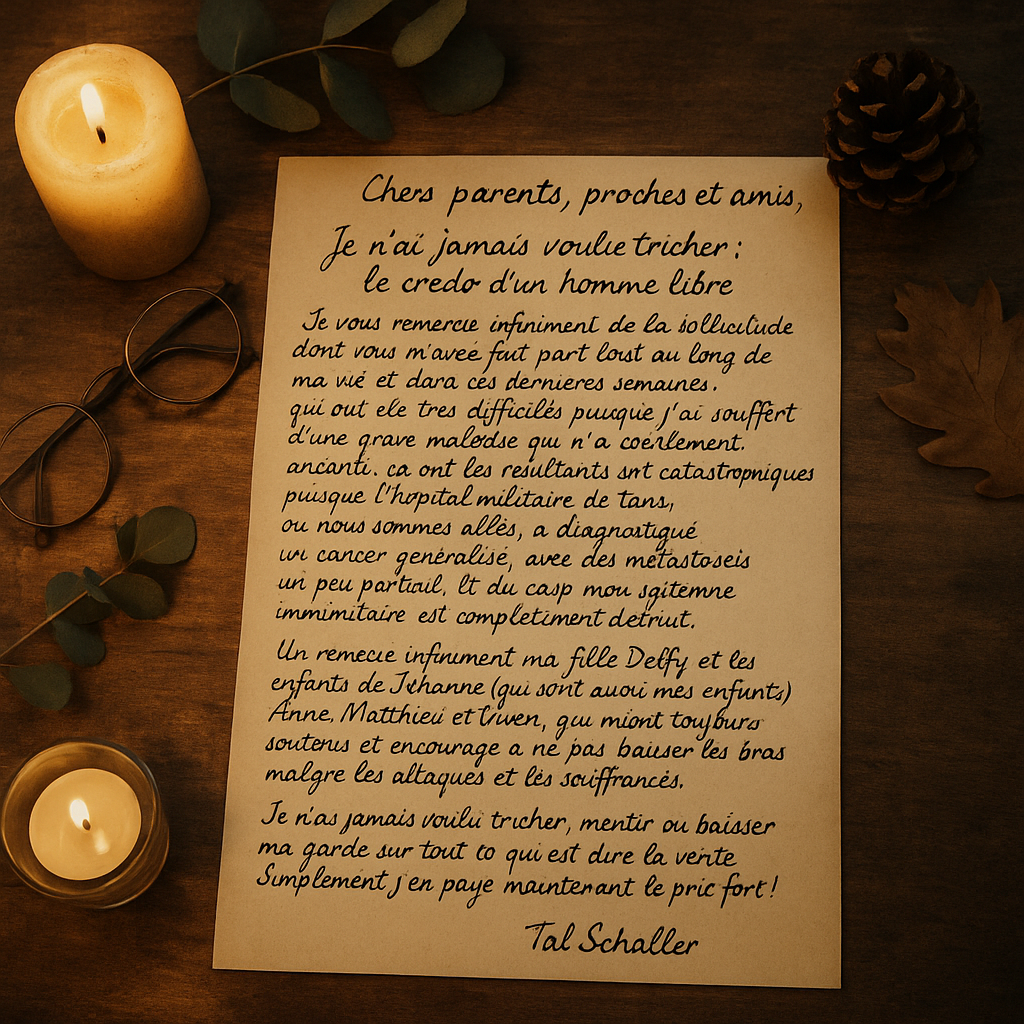 Chers parents, proches et amis,
Je n'ai jamais voulue tricher :
le credo d'un homme libre
Je vous remercie infiniment de la sollicilude
dont vous m'aveé fait part loist au long de
ma vié et dara ces dernieres semaines.
qui out ele tres difficilés puuque j'ai souffert
d'une grave malodse qui n'a coenlement.
ancanti. ca ont les resultants snt catastropniques
puisque l'hopital militaire de tans,
ou nous sommes allés, a diagnastigué
un cancer generalisé, avec des metastoseis
un peu partiail. lt du casp mou sgitemne
immimitaire est completiment detriut.
Un remecie infinument ma fille Delfy et les
enfants de Jehanne (qui sont auoi mes enfunts)
Anne, Matthieu et Viven, qui miont toujburs
soutenus et encourage a ne pas baiuser les bras
malgre les altaques et lés souffrancés.
Je n'as jamais voulu tricher, mentir ou baisser
ma garde sur tout to qui est dire la vérte
Simplement j'en paye maintenant le pric fort!
Tal Schaller